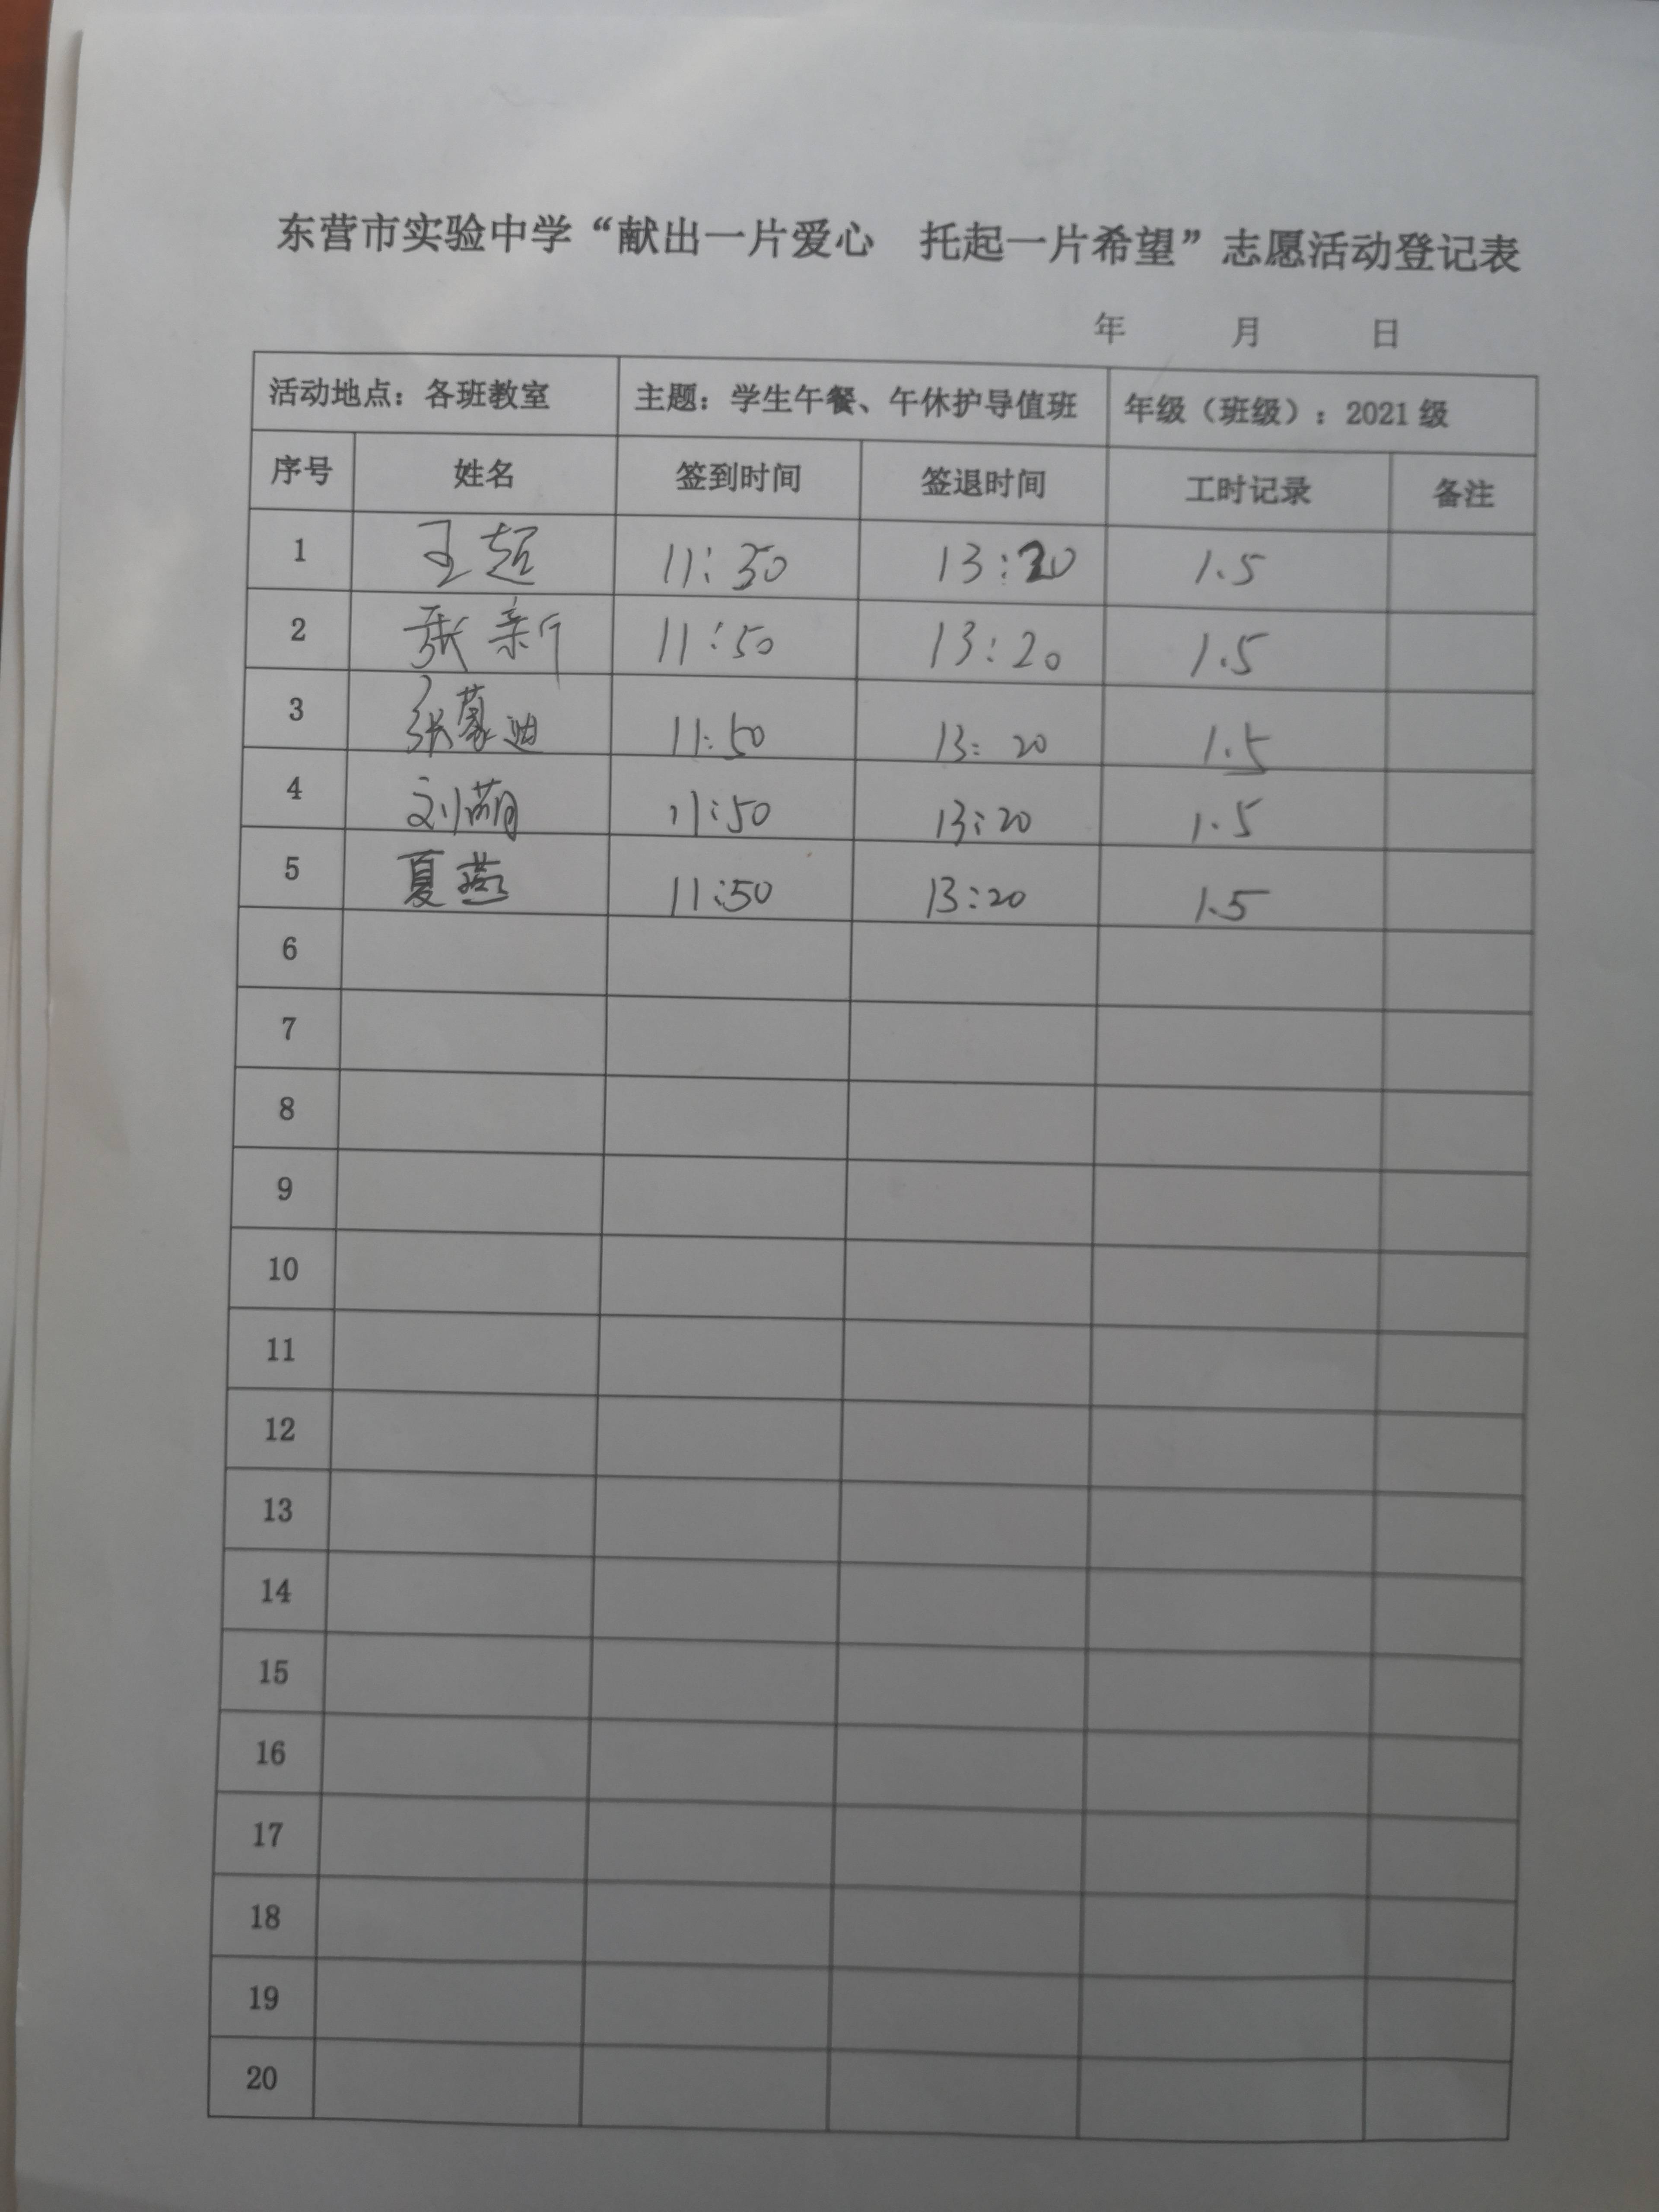 东营市实验中学“献出一片爱心 托起一片希望”志愿活动登记表
年 月 日
活动地点：各班教室 主题：学生午餐、午休护导值班 年级（班级）：2021级
序号 姓名 签到时间 签退时间 工时记录 备注
1 王超 11:30 13:20 1.5
2 张新 11:50 13:20 1.5
3 张蒙迪 11:50 13:20 1.5
4 刘萌 11:50 13:20 1.5
5 夏燕 11:50 13:20 1.5
6
7
8
9
10
11
12
13
14
15
16
17
18
19
20